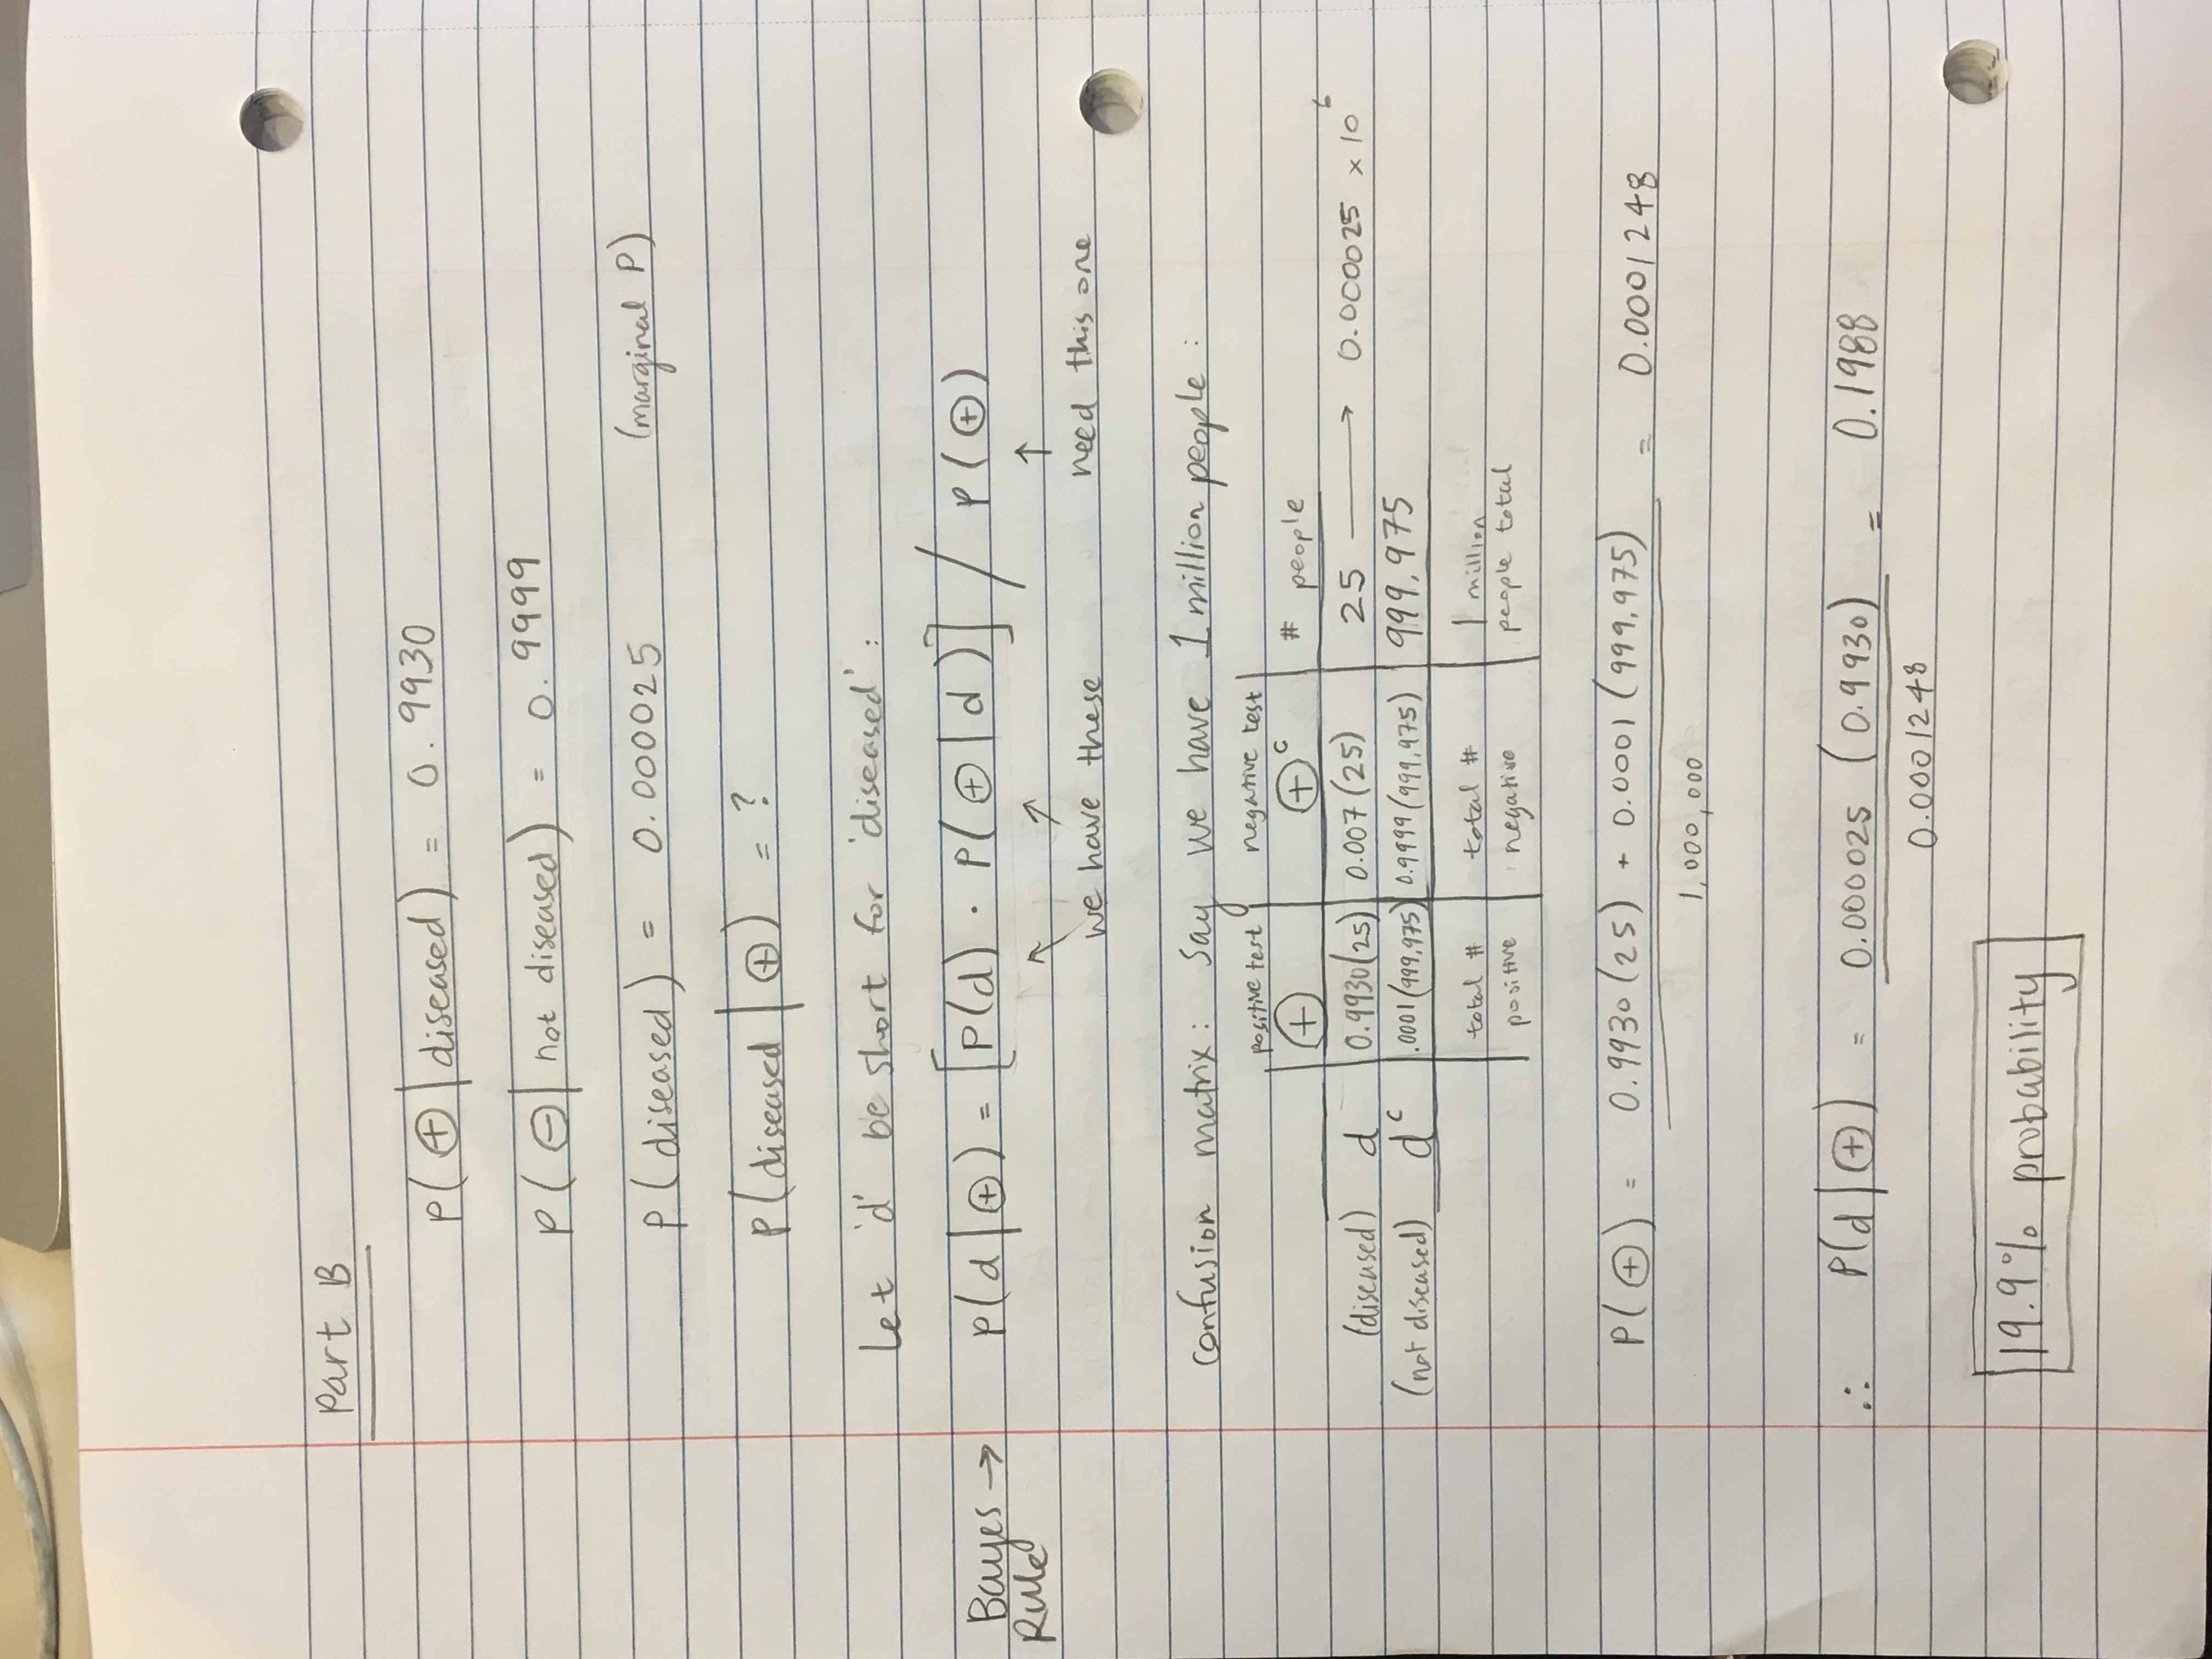 Part B
P(⊕|diseased) = 0.9930
P(⊖|not diseased) = 0.9999
P(diseased) = 0.000025 (marginal P)
P(diseased|⊕) = ?
Let 'd' be short for 'diseased':
Bayes Rule → P(d|⊕) = [P(d) · P(⊕|d)] / P(⊕)
↖ ↗ ↑
we have these need this one
Confusion matrix: Say we have 1 million people:
positive test negative test
⊕ ⊕ᶜ # people
(diseased) d 0.9930(25) 0.007(25) 25 → 0.000025 × 10⁶
(not diseased) dᶜ .0001(999,975) 0.9999(999,975) 999,975
total # total # 1 million
positive negative people total
P(⊕) = 0.9930(25) + 0.0001(999,975) = 0.0001248
1,000,000
∴ P(d|⊕) = 0.000025 (0.9930) = 0.1988
0.0001248
19.9% probability